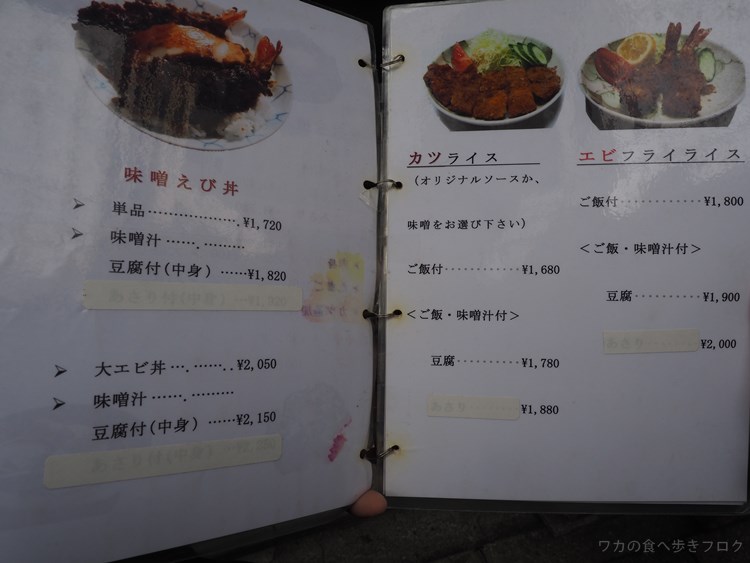 味噌えび丼
単品……………….¥1,720
味噌汁…….………
豆腐付(中身) ……¥1,820
あさり付(中身)
大エビ丼….……..¥2,050
味噌汁…….………
豆腐付(中身) ……¥2,150
あさり付(中身)
カツライス
(オリジナルソースか、
味噌をお選び下さい)
ご飯付··········¥1,680
<ご飯・味噌汁付>
豆腐··········¥1,780
あさり ¥1,880
エビフライライス
ご飯付··········¥1,800
<ご飯・味噌汁付>
豆腐··········¥1,900
あさり ¥2,000
ワカの食べ歩きブログ